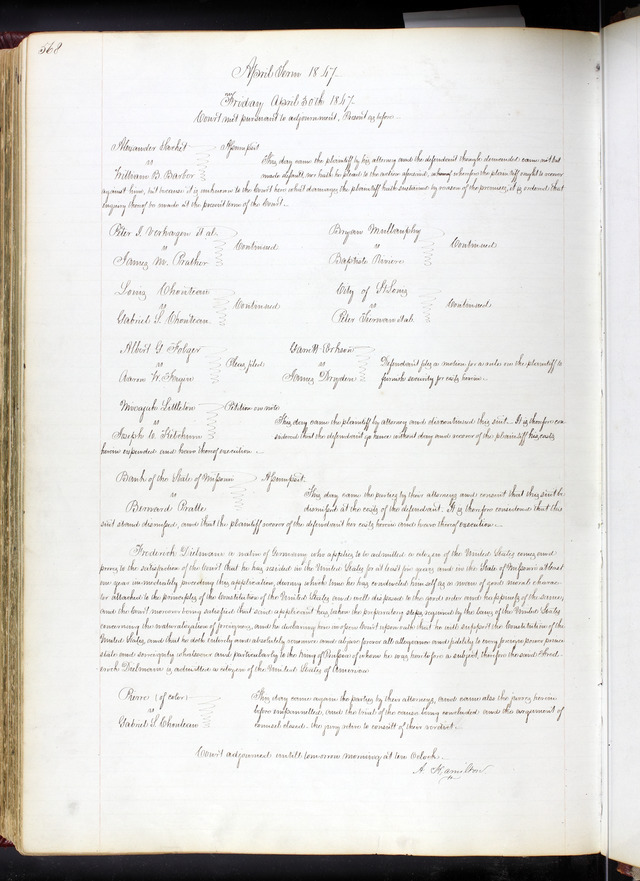 568
April Term 1847
Friday April 30th 1847
Court met pursuant to adjournment, Present as before
Alexander Sackit
vs
William B. Barber
Assumpsit
This day came the plaintiff by his attorney and the defendant though demanded came not but
made default, nor hath he plead to the action aforesaid, whereof the plaintiff ought to recover
against him, but because it is unknown to the Court here what damages the plaintiff hath sustained by reason of the premises, it is ordered that
inquiry thereof be made at the present term of the Court
Peter I. et al
vs
James M. Prather
Continued
Bryan Mullanphy
vs
Baptiste
Continued
Louis Chouteau
vs
Gabriel S. Chouteau
Continued
City of St Louis
vs
Peter et al
Continued
Albert G. Folger
vs
Aaron W. Fagin
Pleas filed
Garrett
vs
James Dryden
Defendant files a motion for a rule on the plaintiff to
furnish security for costs herein
Littleton
vs
Joseph C.
Petition on note
This day came the plaintiff by attorney and discontinued this suit. It is therefore con
sidered that the defendant go hence without day and recover of the plaintiff his costs
herein expended and have thereof execution
Bank of the State of Missouri
vs
Bernard Pratte
Assumpsit
This day came the parties by their attorneys and consent that this suit be
dismissed at the costs of the defendant. It is therefore considered that this
suit stand dismissed, and that the plaintiff recover of the defendant her costs herein and have thereof execution
Frederick Dickmann a native of Germany who applies to be admitted a citizen of the United States comes and
proves to the satisfaction of the Court that he has resided in the United States for at least five years and in the State of Missouri at least
one year immediately preceding this application, during which time he has conducted himself as a man of good moral charac-
ter attached to the principles of the Constitution of the United States and well disposed to the good order and happiness of the same,
and the Court moreover being satisfied that said applicant has taken the preparatory steps required by the laws of the United States
concerning the naturalization of foreigners, and he declaring here in open Court upon oath that he will support the Constitution of the
United States, and that he doth entirely and absolutely renounce and abjure forever all allegiance and fidelity to every foreign power prince
state and sovereignty whatsoever and particularly to the King of Prussia of whom he was heretofore a subject, therefore the said Fred-
erick Dickmann is admitted a citizen of the United States of America
Pierre (of color)
vs
Gabriel S. Chouteau
This day came again the parties by their attorneys, and came also the jurors herein
before empannelled, and the trial of the cause being concluded and the argument of
counsel closed the jury retire to consult of their verdict
Court adjourned untill tomorrow morning at ten Oclock
A. Hamilton